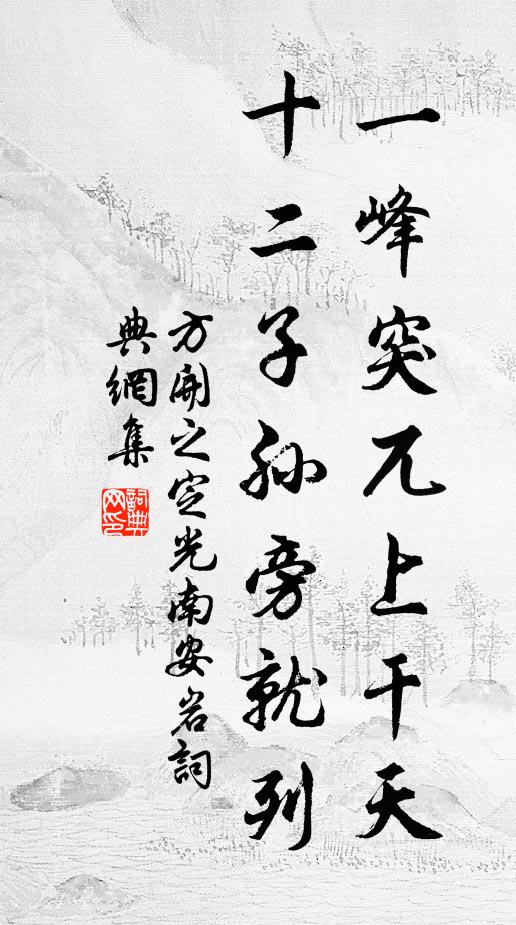 一峰突兀上干天
十二子孙旁就列
方開之定光南安岩詞
典網集
詞典
网印